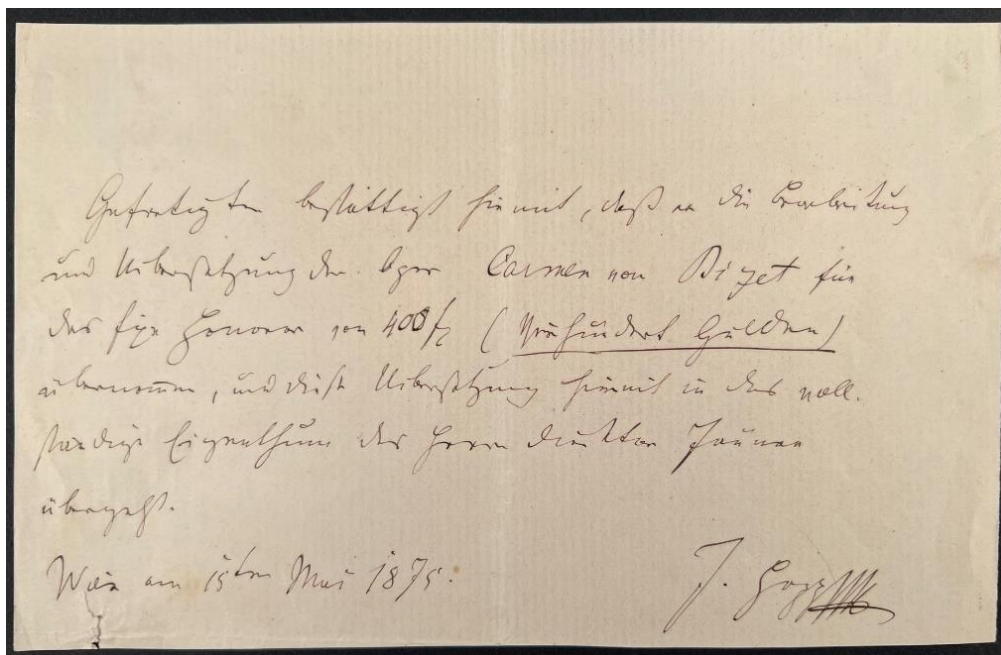 Gefertigter bestättigt hiemit, daß er die Bearbeitung
und Uibersetzung der Oper Carmen von Bizet für
das fixe Honorar von 400 fl (Vierhundert Gulden)
übernommen, und diese Uibersetzung hiemit in das voll-
ständige Eigenthum des Herrn Direktor Jauner
übergeht.
Wien am 15ten Mai 1875.
J. Hopp